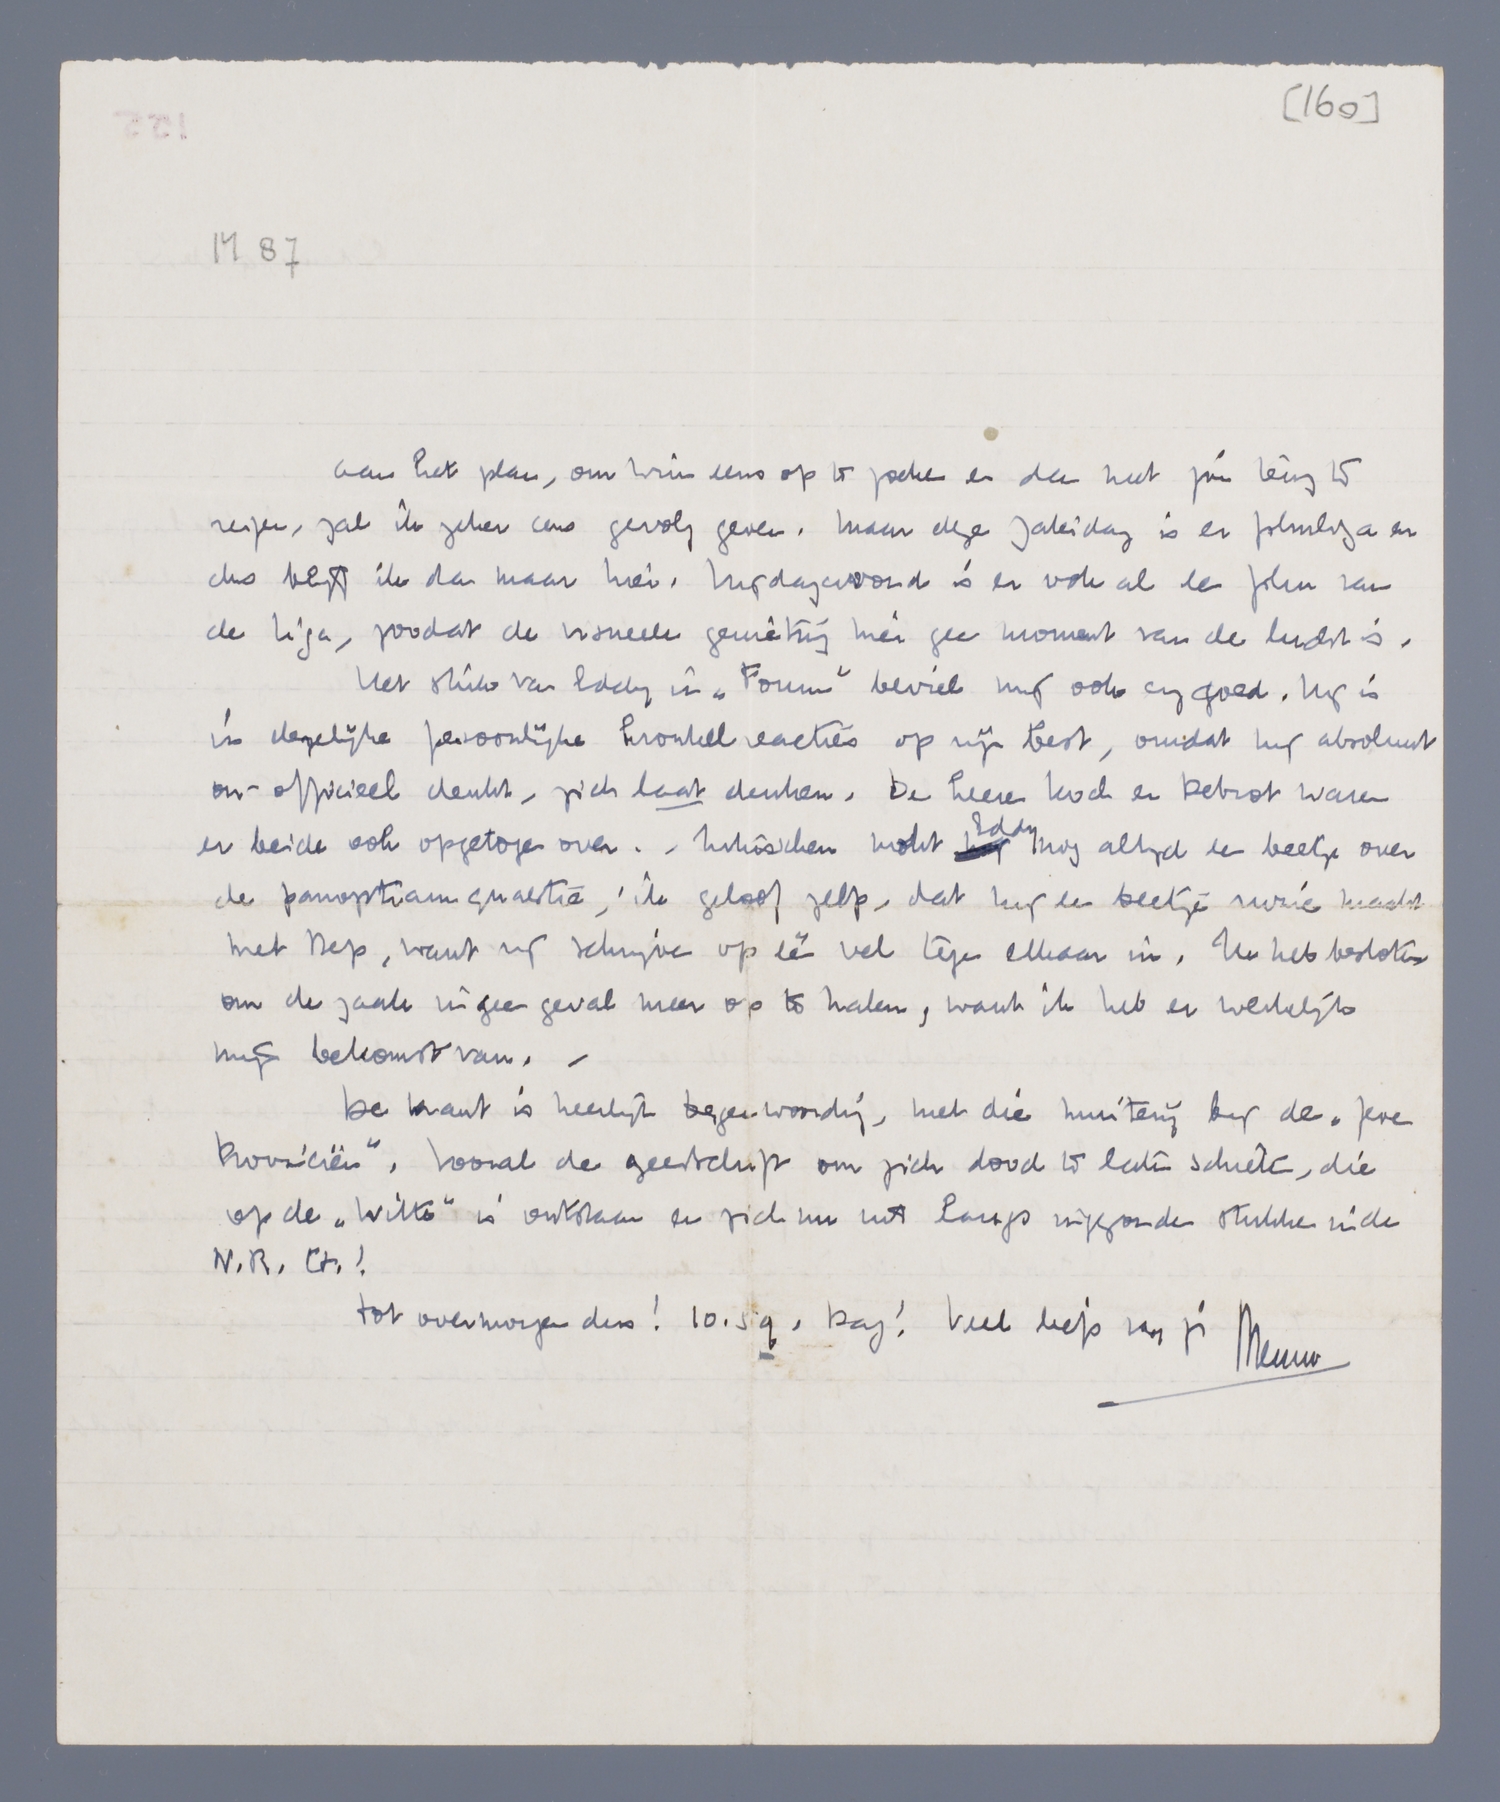 [160]
M 87
aan het plan, om Wim eens op te zoeken en dan met jou terug te
reizen, zal ik zeker eens gevolg geven. Maar deze Zaterdag is er filmliga en
dus blijf ik dan maar hier. Vrijdagavond is er ook al een film van
de Liga, zoodat de visueele genieting hier geen moment van de lucht is.
Het stuk van Eddy in „Forum" beviel mij ook erg goed. Hij is
in dergelijke persoonlijke kronkelreacties op zijn best, omdat hij absoluut
on-officieel denkt, zich laat denken. De heeren Koch en Debrot waren
er beide ook opgetogen over. - Intusschen mokt Eddy nog altijd een beetje over
de panopticum quaestie; ik geloof zelfs, dat hij een beetje ruzie maakt
met Bep, want zij schrijven op één vel tegen elkaar in. Ik heb besloten
om de zaak in geen geval meer op te halen, want ik heb er werkelijk
mijn bekomst van. -
De krant is heerlijk tegenwoordig, met die muiterij bij de „Zeven
Provinciën". Vooral de geestdrift om zich dood te laten schieten, die
op de „Witte" is ontstaan en zich nu uit in ingezonden stukken in de
N.R. Ct.!
Tot overmorgen dus! 10.59. Dag! Veel liefs van je Menno